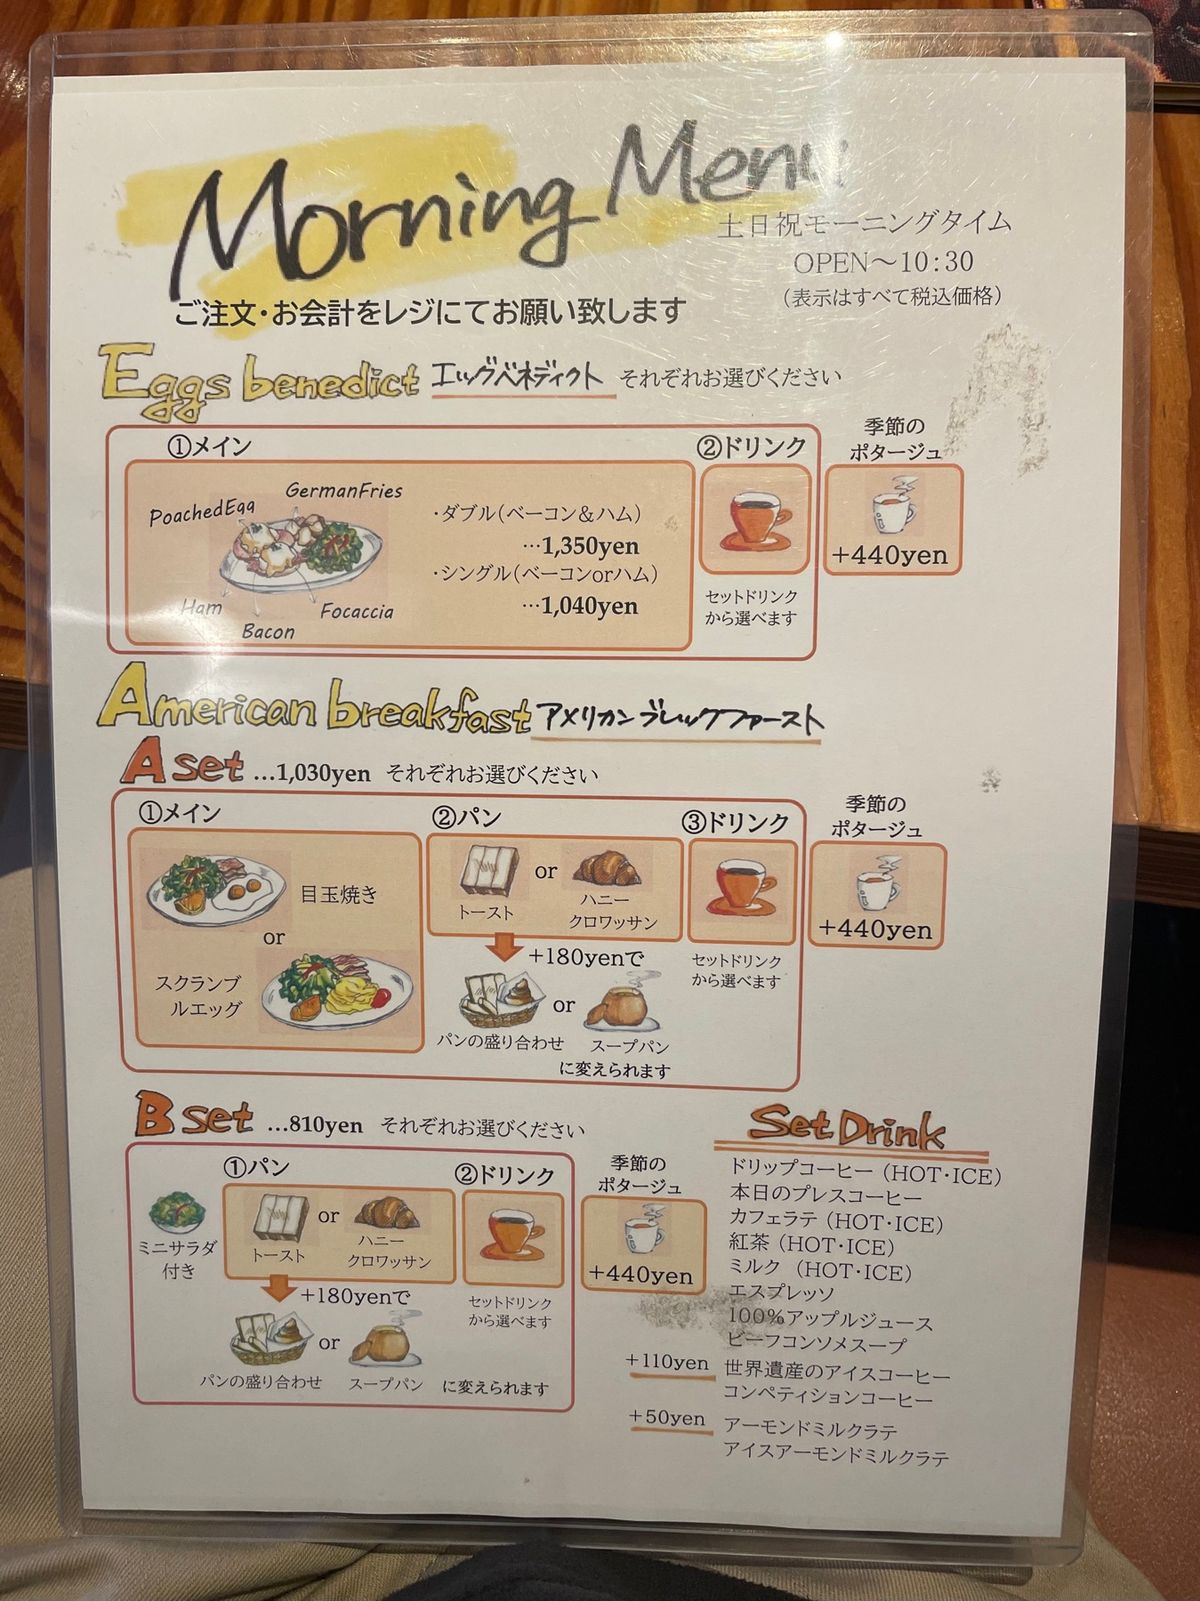 Morning Menu
土日祝モーニングタイム
OPEN～10:30
(表示はすべて税込価格)
ご注文・お会計をレジにてお願い致します
Eggs benedict エッグベネディクト それぞれお選びください
①メイン
PoachedEgg
GermanFries
Ham
Bacon
Focaccia
・ダブル(ベーコン＆ハム)
…1,350yen
・シングル(ベーコンorハム)
…1,040yen
②ドリンク
セットドリンク
から選べます
季節の
ポタージュ
+440yen
American breakfast アメリカンブレックファースト
A set …1,030yen それぞれお選びください
①メイン
目玉焼き
or
スクランブ
ルエッグ
②パン
トースト
or
ハニー
クロワッサン
+180yenで
パンの盛り合わせ
or
スープパン
に変えられます
③ドリンク
セットドリンク
から選べます
季節の
ポタージュ
+440yen
B set …810yen それぞれお選びください
ミニサラダ
付き
①パン
トースト
or
ハニー
クロワッサン
+180yenで
パンの盛り合わせ
or
スープパン
に変えられます
②ドリンク
セットドリンク
から選べます
季節の
ポタージュ
+440yen
Set Drink
ドリップコーヒー (HOT・ICE)
本日のプレスコーヒー
カフェラテ (HOT・ICE)
紅茶 (HOT・ICE)
ミルク (HOT・ICE)
エスプレッソ
100%アップルジュース
ビーフコンソメスープ
+110yen 世界遺産のアイスコーヒー
コンペティションコーヒー
+50yen アーモンドミルクラテ
アイスアーモンドミルクラテ